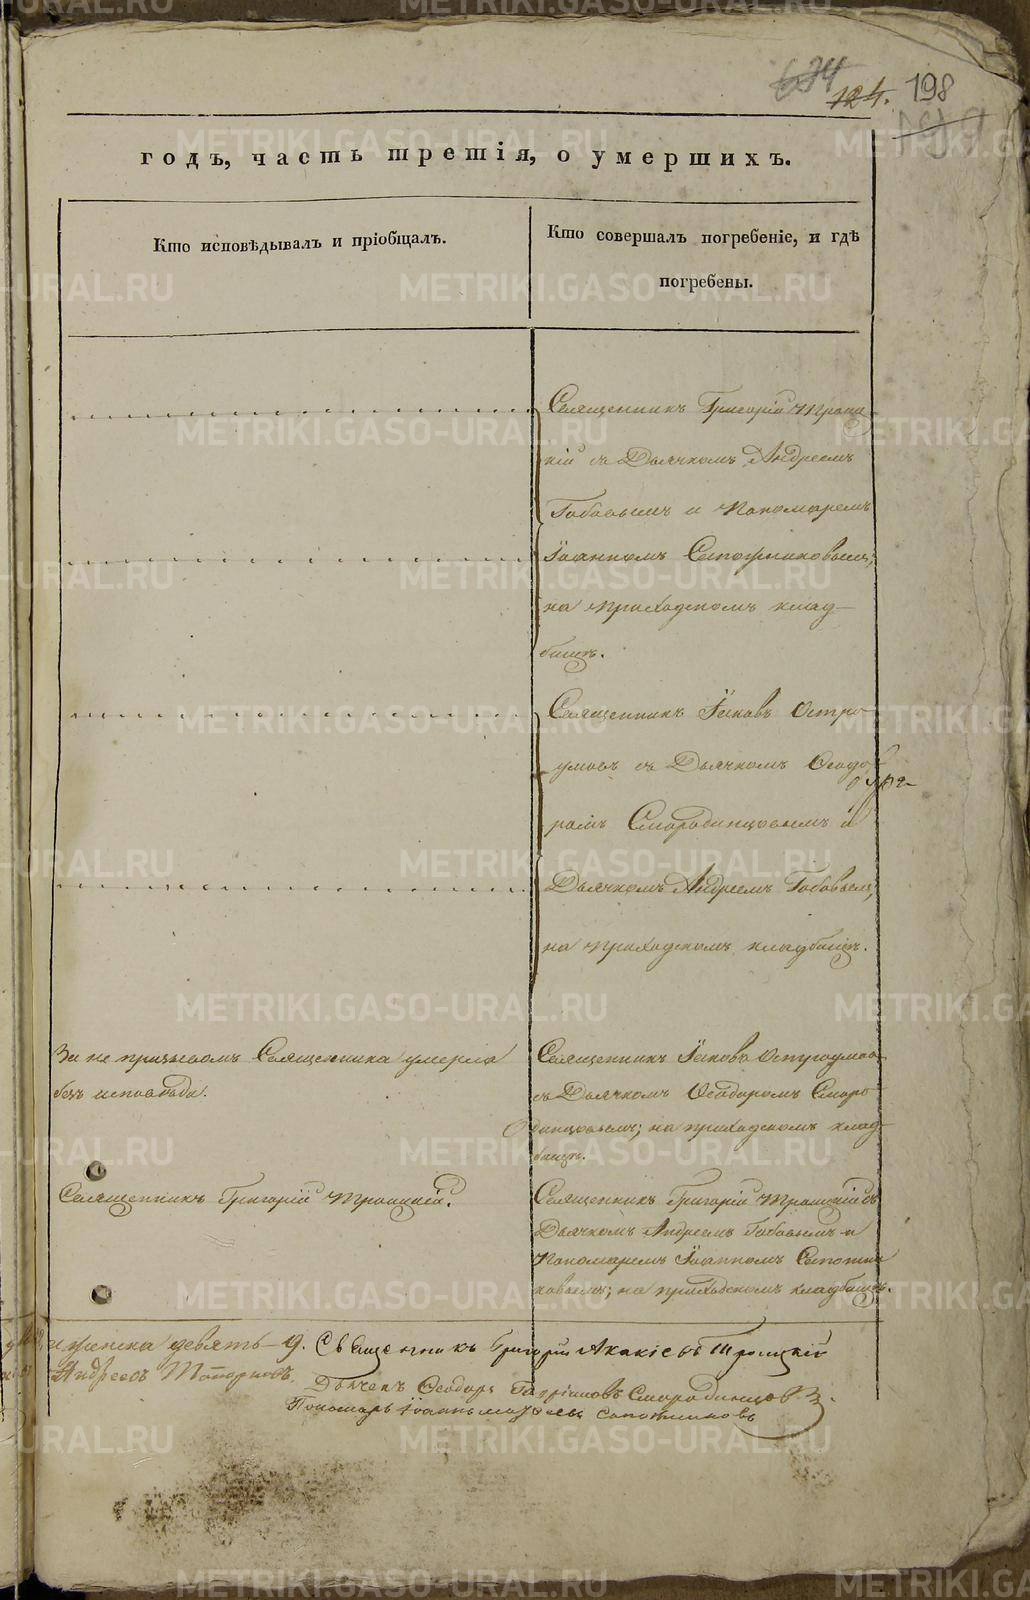 634
124. 198
годъ, часть третія, о умершихъ.
Кто исповѣдывалъ и пріобщалъ.
Кто совершалъ погребеніе, и гдѣ
погребены.
Священникъ Григорій Троиц-
кій съ Дьячкомъ Андреемъ
Бабовымъ и Пономаремъ
Іоанномъ Сапожниковымъ;
на приходскомъ клад-
бищѣ.
Священникъ Іаковъ Остро-
умовъ съ Дьячкомъ Ѳеодо-
ромъ Смородинцовымъ и
Дьячкомъ Андреемъ Бабовымъ,
на приходскомъ кладбищѣ.
За не призывомъ Священника умерла
безъ исповѣди.
Священникъ Іаковъ Остроумовъ
съ Дьячкомъ Ѳеодоромъ Сморо-
динцовымъ; на приходскомъ клад-
бищѣ.
Священникъ Григорій Троицкій.
Священникъ Григорій Троицкій съ
Дьячкомъ Андреемъ Бабовымъ и
Пономаремъ Іоанномъ Сапожни-
ковымъ; на приходскомъ кладбищѣ.
и женска девять - 9. Священникъ Григорій Акакіевъ Троицкій
Андреевъ Топорковъ.
Дьячекъ Ѳеодоръ Смородинцовъ.
Пономарь Іоаннъ Сапожниковъ
METRIKI.GASO-URAL.RU